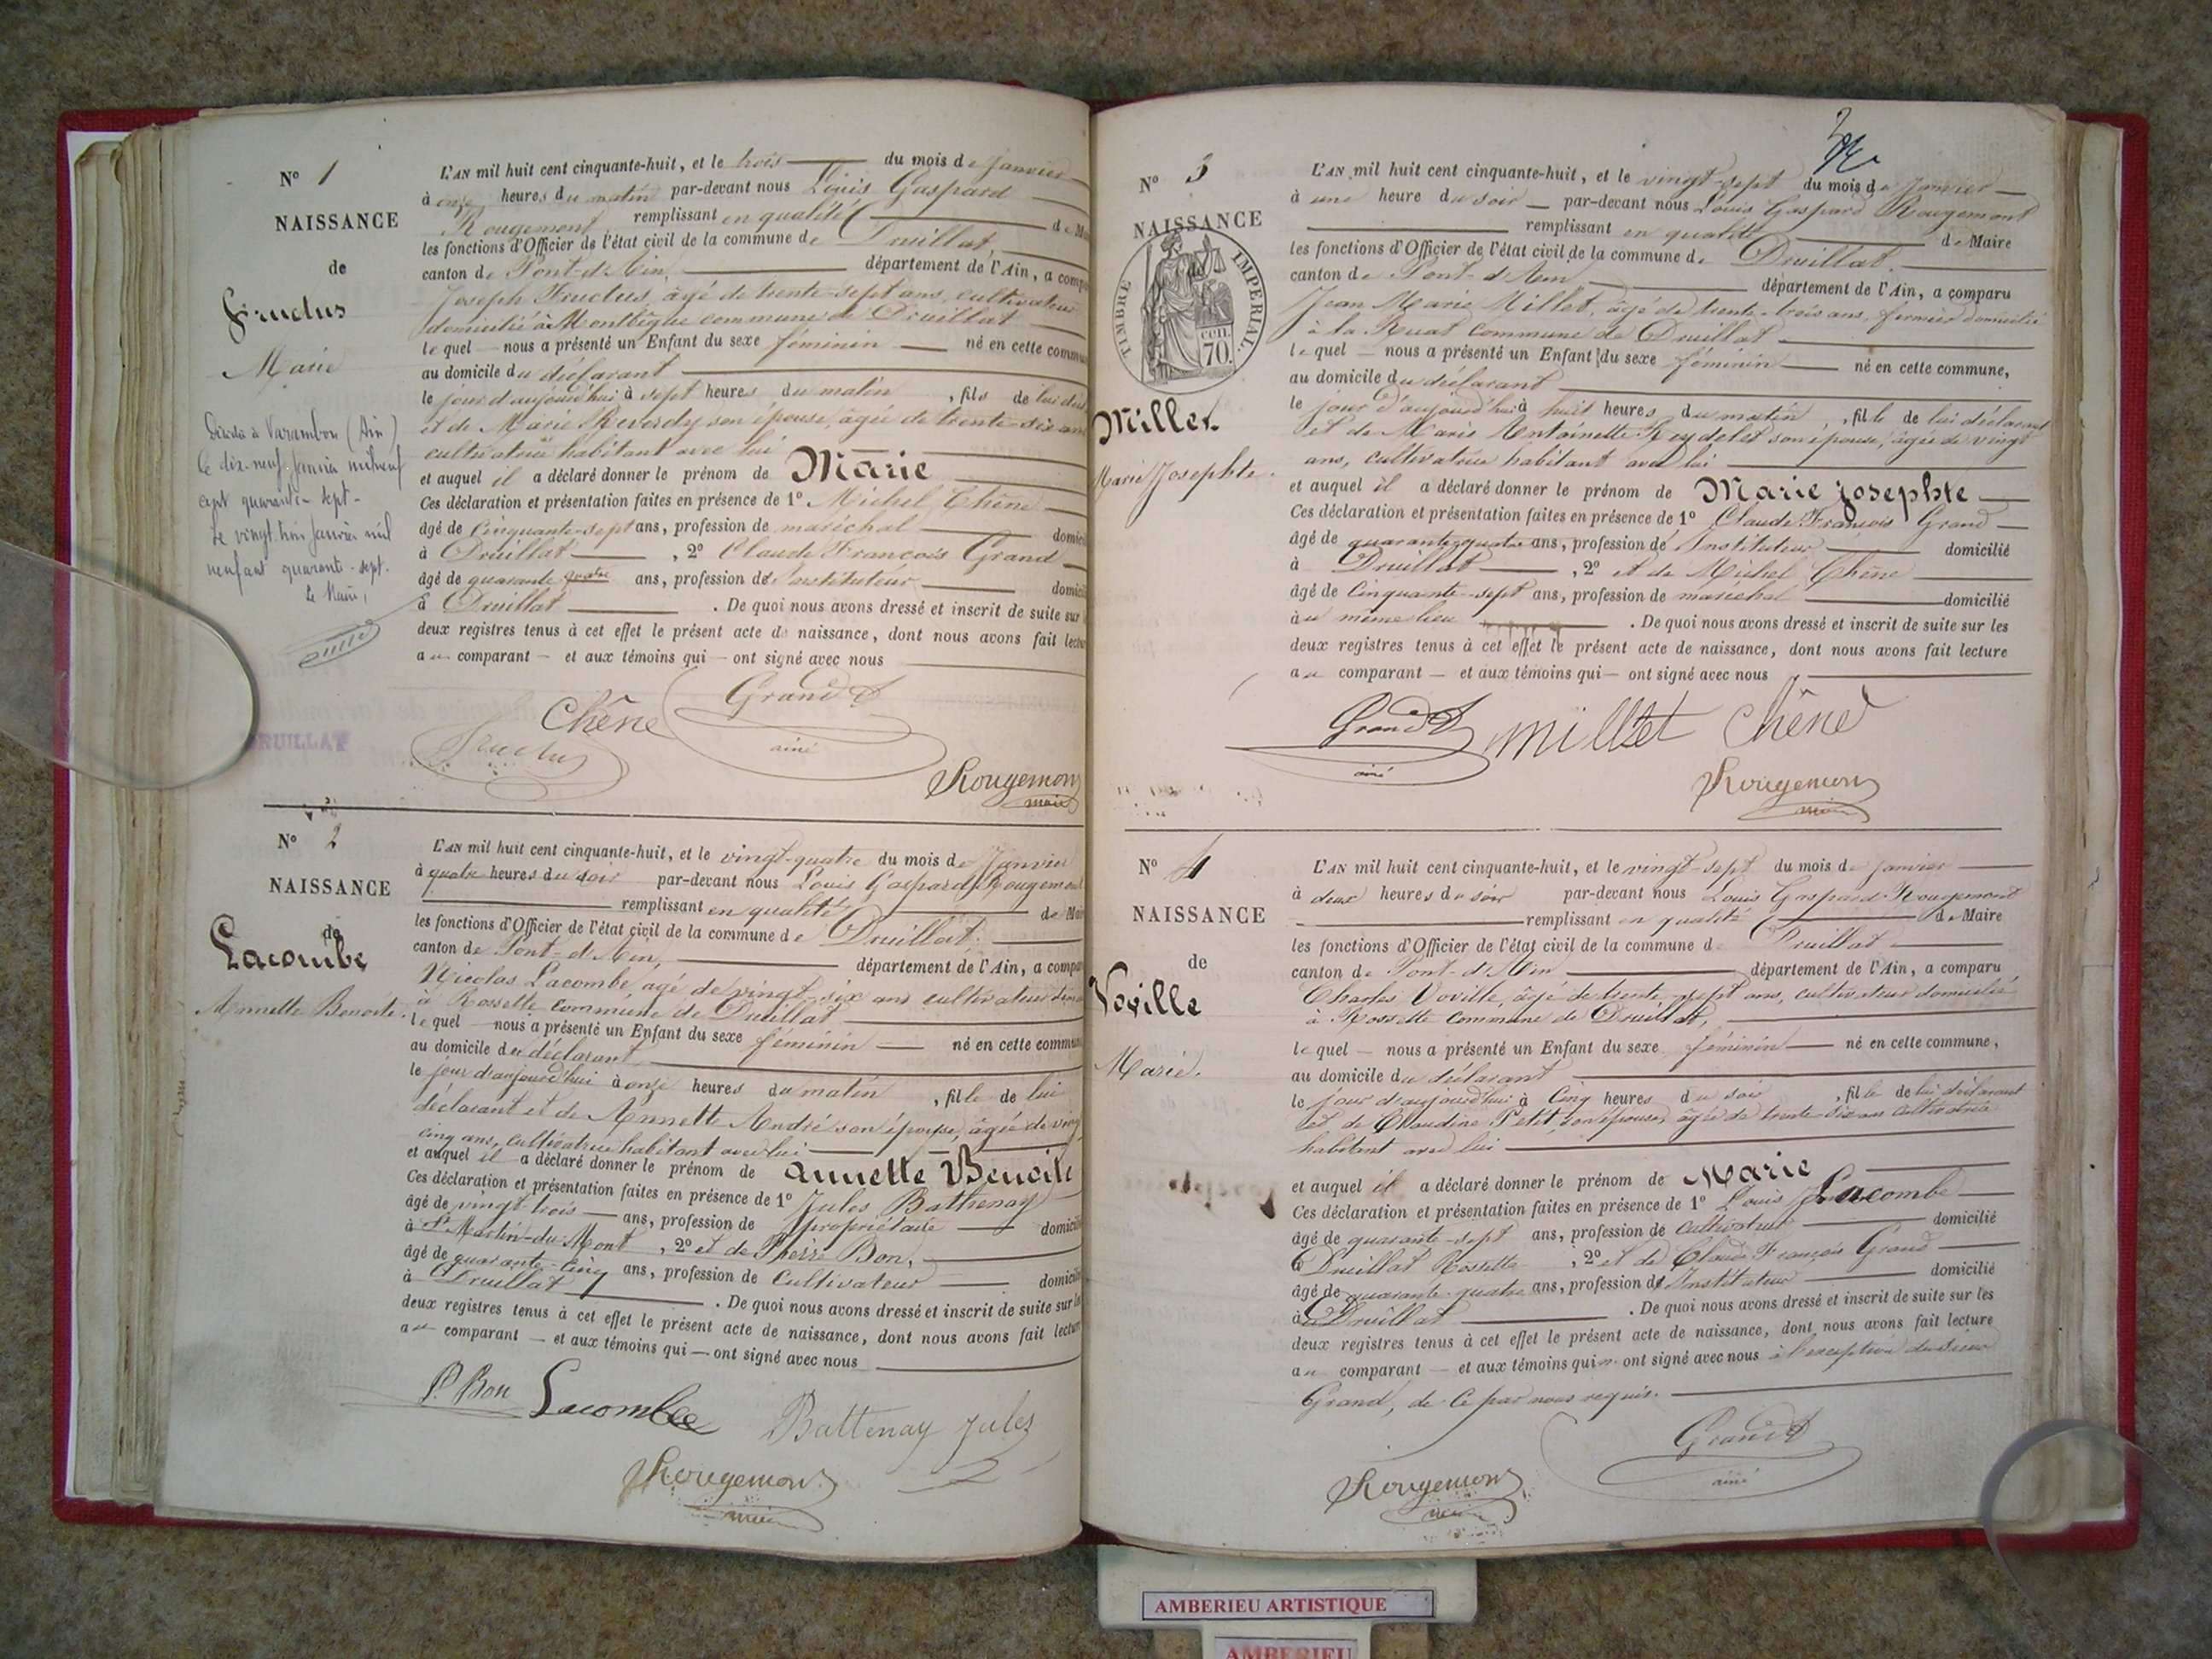 N° 1
NAISSANCE
de
Fructus
Marie
Décédée à Varambon (Ain)
le dix-neuf Janvier mil neuf
cent quarante-sept-
Le vingt trois Janvier mil
neuf cent quarante-sept.
Le Maire,
L'AN mil huit cent cinquante-huit, et le trois du mois de Janvier
à onze heures du matin par-devant nous Louis Gaspard
Rougemont remplissant en qualité de Ma
les fonctions d'Officier de l'état civil de la commune de Druillat,
canton de Pont-d'Ain, département de l'Ain, a compa
Joseph Fructus, âgé de trente-sept ans, cultivateur
domicilié à commune de Druillat
lequel nous a présenté un Enfant du sexe féminin né en cette commu
au domicile du déclarant
le jour d'aujourd'hui à sept heures du matin, fils de lui
et de Marie Reverdy son épouse, âgée de trente-six ans
cultivatrice habitant avec lui
et auquel il a déclaré donner le prénom de Marie
Ces déclaration et présentation faites en présence de 1° Michel Chêne
âgé de cinquante-sept ans, profession de maréchal domici
à Druillat, 2° Claude François Grand
âgé de quarante quatre ans, profession de instituteur domici
à Druillat. De quoi nous avons dressé et inscrit de suite sur
deux registres tenus à cet effet le présent acte de naissance, dont nous avons fait lectur
au comparant — et aux témoins qui — ont signé avec nous
Chêne Grand
Fructus ainé
Rougemont
maire
DRUILLAT
N° 2
NAISSANCE
de
Lacombe
Annette Benoite.
L'AN mil huit cent cinquante-huit, et le vingt-quatre du mois de Janvier
à quatre heures du soir par-devant nous Louis Gaspard Rougemont
remplissant en qualité de Mai
les fonctions d'Officier de l'état civil de la commune de Druillat.
canton de Pont-d'Ain, département de l'Ain, a compa
Nicolas Lacombe, âgé de vingt six ans cultivateur
à Rossette commune de Druillat
lequel — nous a présenté un Enfant du sexe féminin — né en cette commun
au domicile du déclarant
le jour d'aujourd'hui à onze heures du matin, fille de lui
déclarant et de Annette André son épouse, âgée de vingt
cinq ans, cultivatrice habitant avec lui
et auquel il a déclaré donner le prénom de Annette Benoite
Ces déclaration et présentation faites en présence de 1° Jules Battenay
âgé de vingt trois ans, profession de propriétaire domicili
à St Martin-du-Mont, 2° et de Pierre Bon,
âgé de quarante-cinq ans, profession de cultivateur domicili
à Druillat. De quoi nous avons dressé et inscrit de suite sur les
deux registres tenus à cet effet le présent acte de naissance, dont nous avons fait lectur
au comparant — et aux témoins qui — ont signé avec nous
P. Bon Lacombe Battenay Jules
Rougemont
maire
2
N° 3
NAISSANCE
TIMBRE IMPERIAL.
70.
Millet
Marie Josephte.
L'AN mil huit cent cinquante-huit, et le vingt-sept du mois de Janvier
à une heure du soir — par-devant nous Louis Gaspard Rougemont
remplissant en qualité de Maire
les fonctions d'Officier de l'état civil de la commune de Druillat.
canton de Pont-d'Ain département de l'Ain, a comparu
Jean Marie Millet, âgé de trente-trois ans, fermier domicilié
à la Ruat commune de Druillat
lequel — nous a présenté un Enfant du sexe féminin — né en cette commune,
au domicile du déclarant
le jour d'aujourd'hui à huit heures du matin, fille de lui déclarant
et de Marie Antoinette Reydelet son épouse, âgée de vingt
ans, cultivatrice habitant avec lui
et auquel il a déclaré donner le prénom de Marie Josephte
Ces déclaration et présentation faites en présence de 1° Claude François Grand
âgé de quarante quatre ans, profession de Instituteur domicilié
à Druillat, 2° et de Michel Chêne
âgé de cinquante-sept ans, profession de maréchal domicilié
au même lieu. De quoi nous avons dressé et inscrit de suite sur les
deux registres tenus à cet effet le présent acte de naissance, dont nous avons fait lecture
au comparant — et aux témoins qui — ont signé avec nous
Grand millet Chêne
ainé
Rougemont
maire
N° 4
NAISSANCE
de
Voville
Marie.
L'AN mil huit cent cinquante-huit, et le vingt-sept du mois de Janvier
à deux heures du soir par-devant nous Louis Gaspard Rougemont
remplissant en qualité de Maire
les fonctions d'Officier de l'état civil de la commune de Druillat
canton de Pont-d'Ain département de l'Ain, a comparu
Charles Voville, âgé de trente sept ans, cultivateur domicilié
à Rossette commune de Druillat,
lequel — nous a présenté un Enfant du sexe féminin — né en cette commune,
au domicile du déclarant
le jour d'aujourd'hui à cinq heures du soir, fille de lui déclarant
et de Claudine Petit, son épouse, âgée de trente six ans cultivatrice
habitant avec lui
et auquel il a déclaré donner le prénom de Marie
Ces déclaration et présentation faites en présence de 1° Louis Lacombe
âgé de quarante-sept ans, profession de cultivateur domicilié
à Druillat Rossette, 2° et de Claude François Grand
âgé de quarante-quatre ans, profession de Instituteur domicilié
à Druillat. De quoi nous avons dressé et inscrit de suite sur les
deux registres tenus à cet effet le présent acte de naissance, dont nous avons fait lecture
au comparant — et aux témoins qui n'ont signé avec nous à l'exception du sieur
Grand, de ce par nous requis.
Grand
ainé
Rougemont
maire
AMBERIEU ARTISTIQUE
AMBERIEU